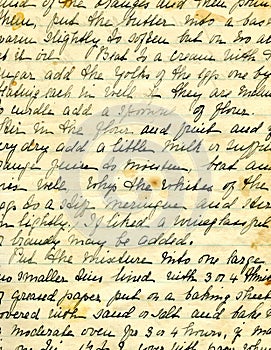 rind of the oranges and then pour
them, put the butter into a bas
warm slightly to soften but on no ac
it oil. Beat to a cream with th
sugar add the yolks of the eggs one by
beating each in well if they are inclin
to curdle add a spoonful of flour.
Stir in the flour and fruit and if
very dry add a little milk or suffic
orange juice to moisten, beat an
mix well. Whip the whites of the
eggs to a stiff meringue and stir
in lightly. If liked a wineglassful
of brandy may be added.
Put the mixture into one large
or smaller tins lined with 3 or 4 thick
of greased paper put on a baking sheet
covered with sand or salt and bake
a moderate oven for 3 or 4 hours, if